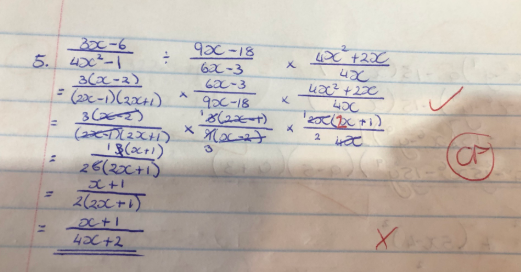 5. (3x-6)/(4x²-1) ÷ (9x-18)/(6x-3) × (4x²+2x)/(4x)
= 3(x-2)/((2x-1)(2x+1)) × (6x-3)/(9x-18) × (4x²+2x)/(4x) ✓
= 3(x-2)/((2x-1)(2x+1)) × 1 3(2x-1)/(9(x-2)) 3 × 1 2x(2x+1)/(4x) 2
= 1 3(x+1)/(2 6(2x+1)) CF
= (x+1)/(2(2x+1))
= (x+1)/(4x+2) ✗